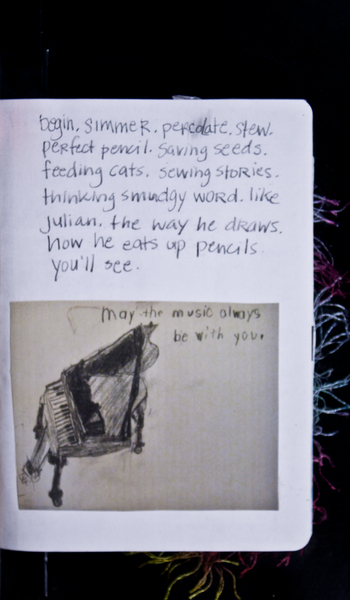 begin. simmer. percolate. stew.
perfect pencil. saving seeds.
feeding cats. sewing stories.
thinking smudgy word. like
julian. the way he draws.
how he eats up pencils.
you'll see.
may the music always
be with you.